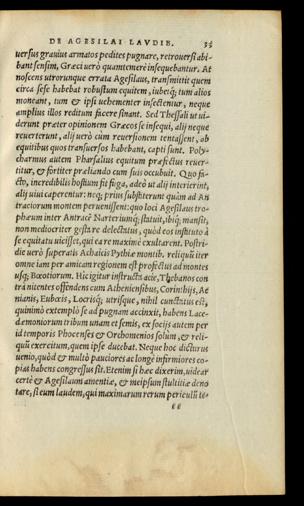 DE AGESILAI LAVDIB. 34
uersus grauius armatos pedites pugnare, retrouersi abi-
bant sensim, Græci uerò quamtemerè insequebantur. At
noscens utrorunque errata Agesilaus, transmittit quem
circa sese habebat robustum equitem, iubetq; tum alios
moneant, tum & ipsi uehementer insectentur, neque
amplius illos reditum facere sinant. Sed Thessali ut ui-
derunt præter opinionem Græcos se insequi, alij neque
reuerterunt, alij uerò cum reuersionem tentassent, ab
equitibus quos transuersos habebant, capti sunt. Poly-
charmus autem Pharsalius equitum præfectus reuer-
titur, & fortiter præliando cum suis occubuit. Quo fa-
cto, incredibilis hostium fit fuga, adeò ut alij interierint,
alij uiui caperentur: neq; prius subsisterunt quàm ad An
traciorum montem peruenissent: quo loci Agesilaus tro-
phæum inter Antracē Nartetiumq; statuit, ibiq; mansit,
non mediocriter gestare delectatus, quòd eos instituto à
se equitatu uicisset, qui ea re maximè exultarent. Postri-
die uerò superatis Achaicis Pythiæ montib. reliquū iter
omne iam per amicam regionem est profectus ad montes
usq; Bœotiorum. Hic igitur instructis acie, Thebanos con
trà nitentes offendens cum Atheniensibus, Corinthijs, Ae
nianis, Eubœis, Locrisq; utrisque, nihil cunctatus est,
quinimò extemplò se ad pugnam accinxit, habens Lace-
dæmoniorum tribum unam et semis, ex socijs autem per
id temporis Phocenses & Orchomenios solum, & reli-
quū exercitum, quem ipse ducebat. Neque hoc dicturus
uenio, quòd & multò pauciores ac longè infirmiores co-
pias habens congressus sit. Etenim si hæc dixerim, uidear
certè & Agesilaum amentiæ, & meipsum stultitiæ deno
tare, si eum laudem, qui maximarum rerum periculū te-
EE